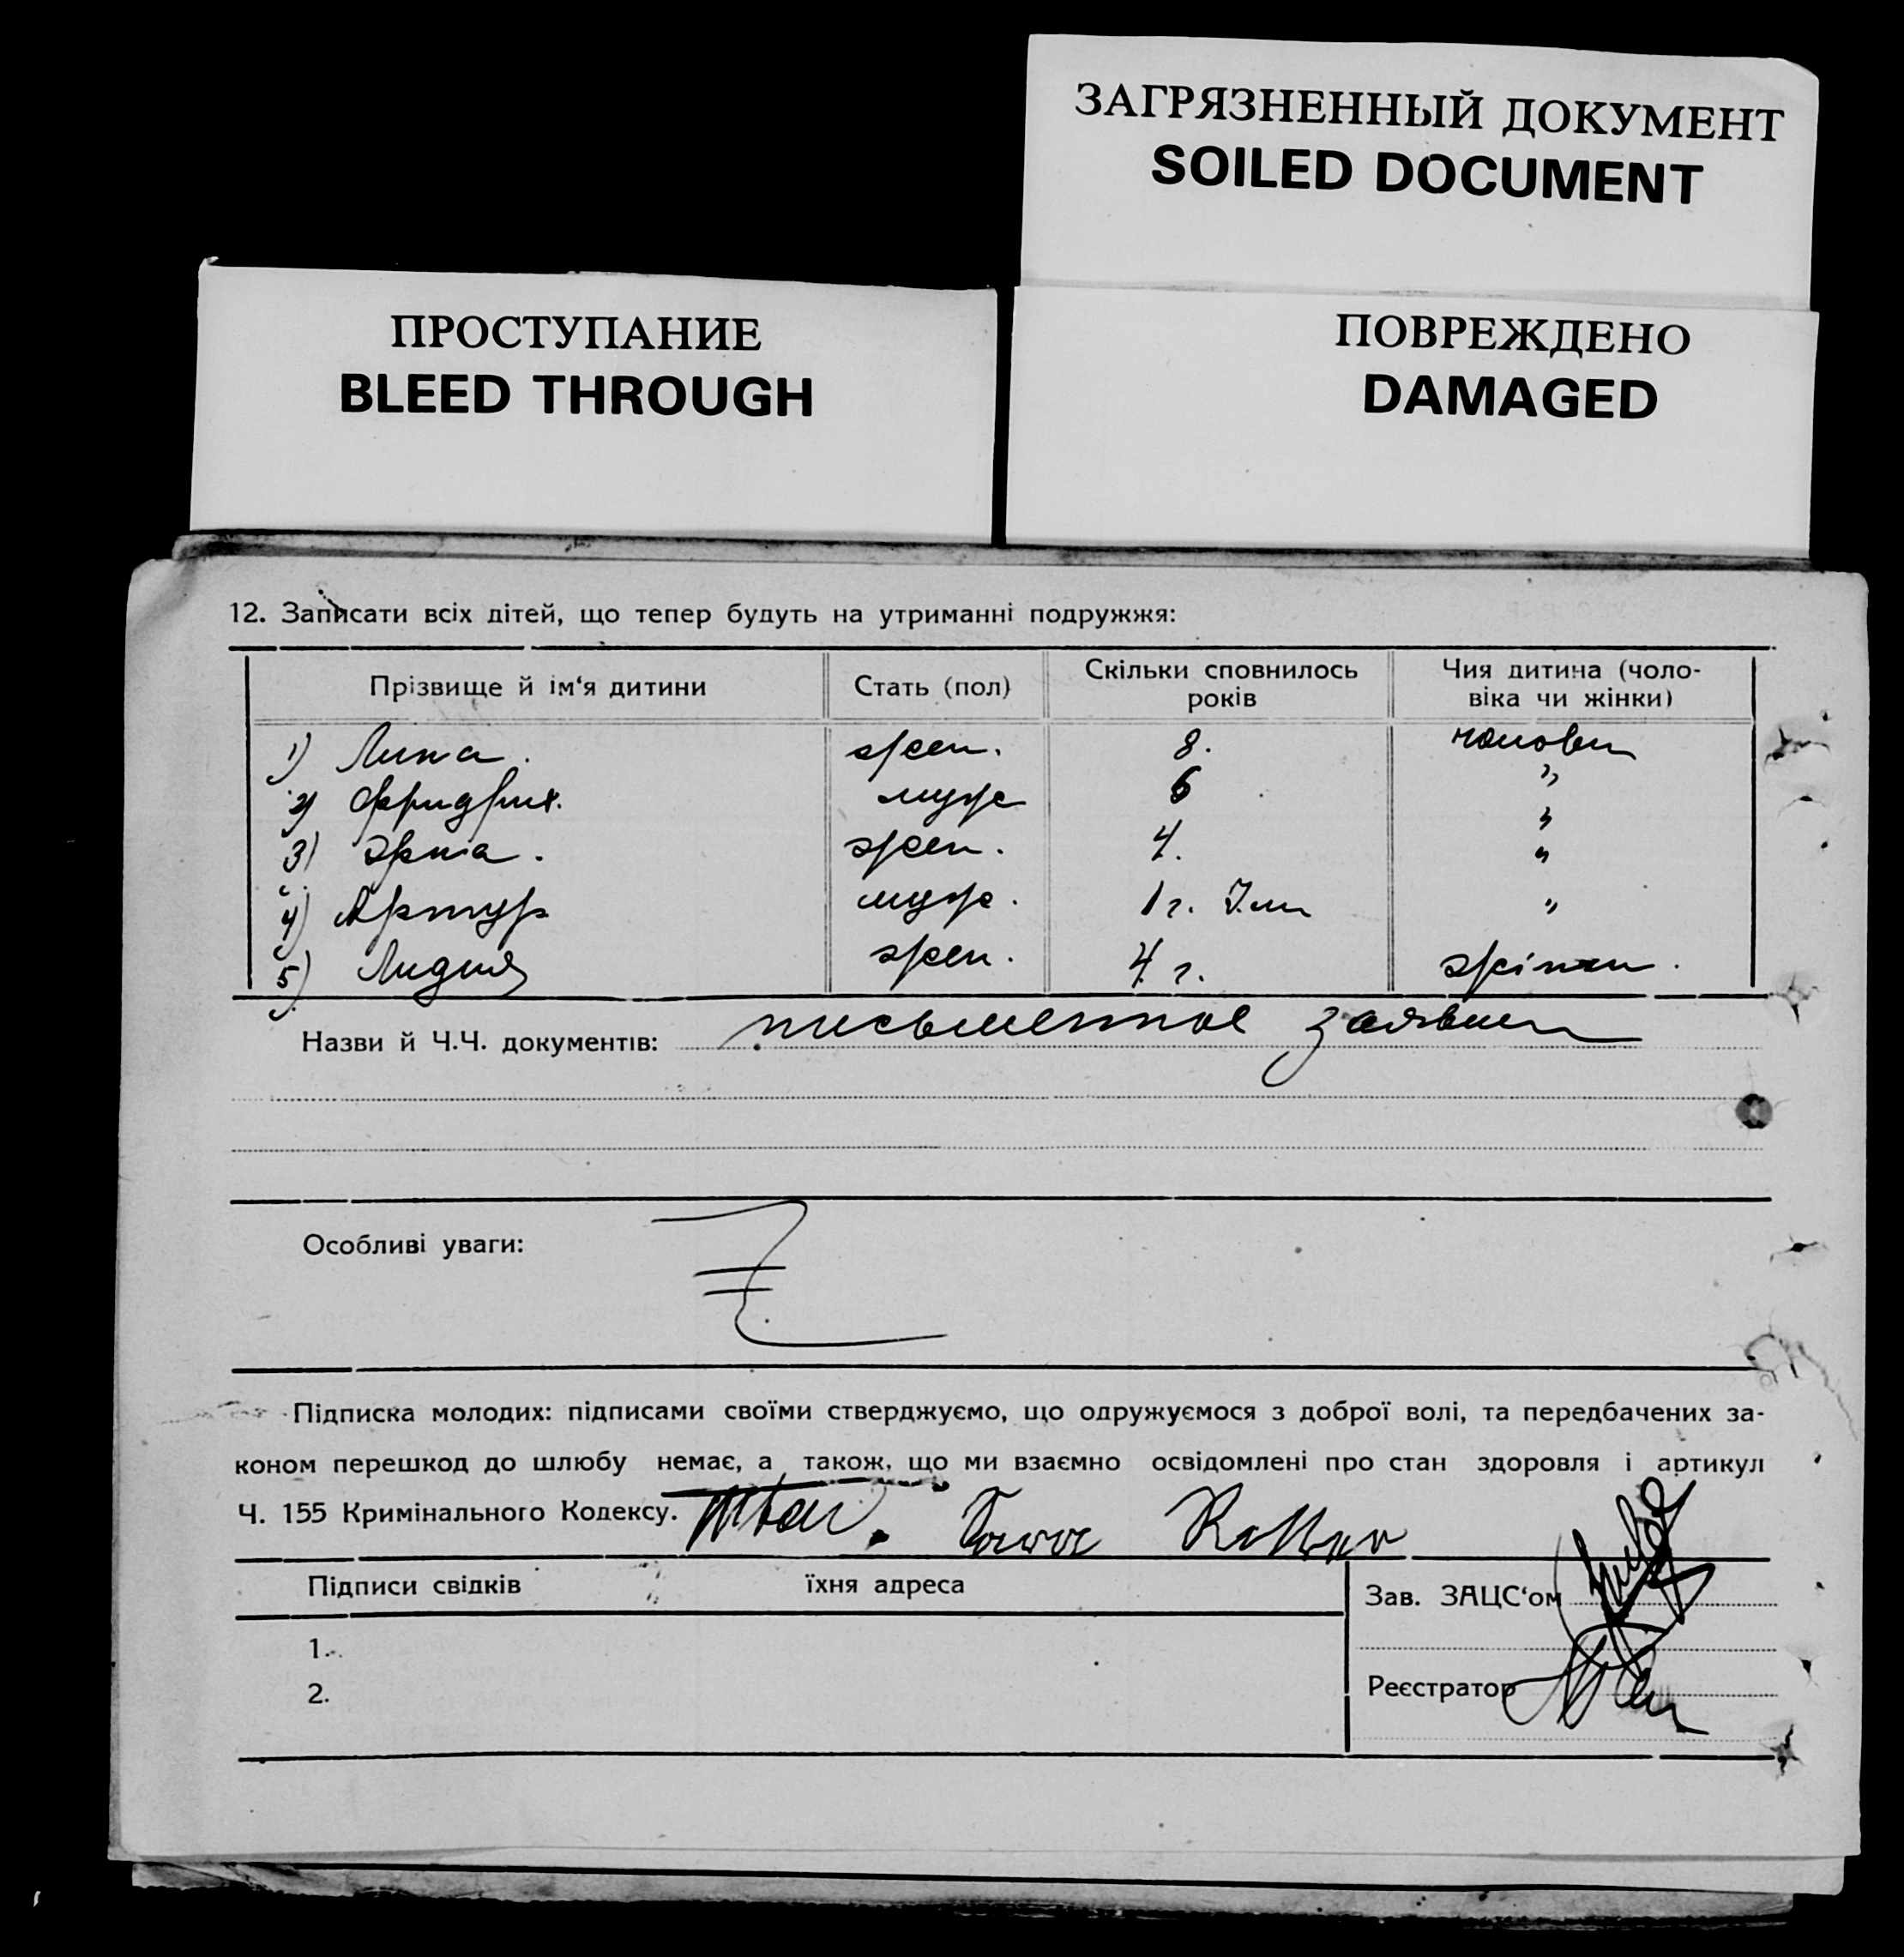 ЗАГРЯЗНЕННЫЙ ДОКУМЕНТ
SOILED DOCUMENT
ПРОСТУПАНИЕ
BLEED THROUGH
ПОВРЕЖДЕНО
DAMAGED
12. Записати всіх дітей, що тепер будуть на утриманні подружжя:
Прізвище й ім‘я дитини Стать (пол) Скільки сповнилось років Чия дитина (чоловіка чи жінки)
1) Лина. жен. 8. чоловік
2) Фридрих. муж 6 "
3) Эрна. жен. 4. "
4) Артур муж. 1 г. 7 м "
5) Лидия жен. 4 г. жінки.
Назви й Ч.Ч. документів: письменное заявлен
Особливі уваги:
Підписка молодих: підписами своїми стверджуємо, що одружуємося з доброї волі, та передбачених за-
коном перешкод до шлюбу немає, а також, що ми взаємно освідомлені про стан здоровля і артикул
Ч. 155 Кримінального Кодексу.
Підписи свідків їхня адреса
Зав. ЗАЦС‘ом
1.
2.
Реєстратор